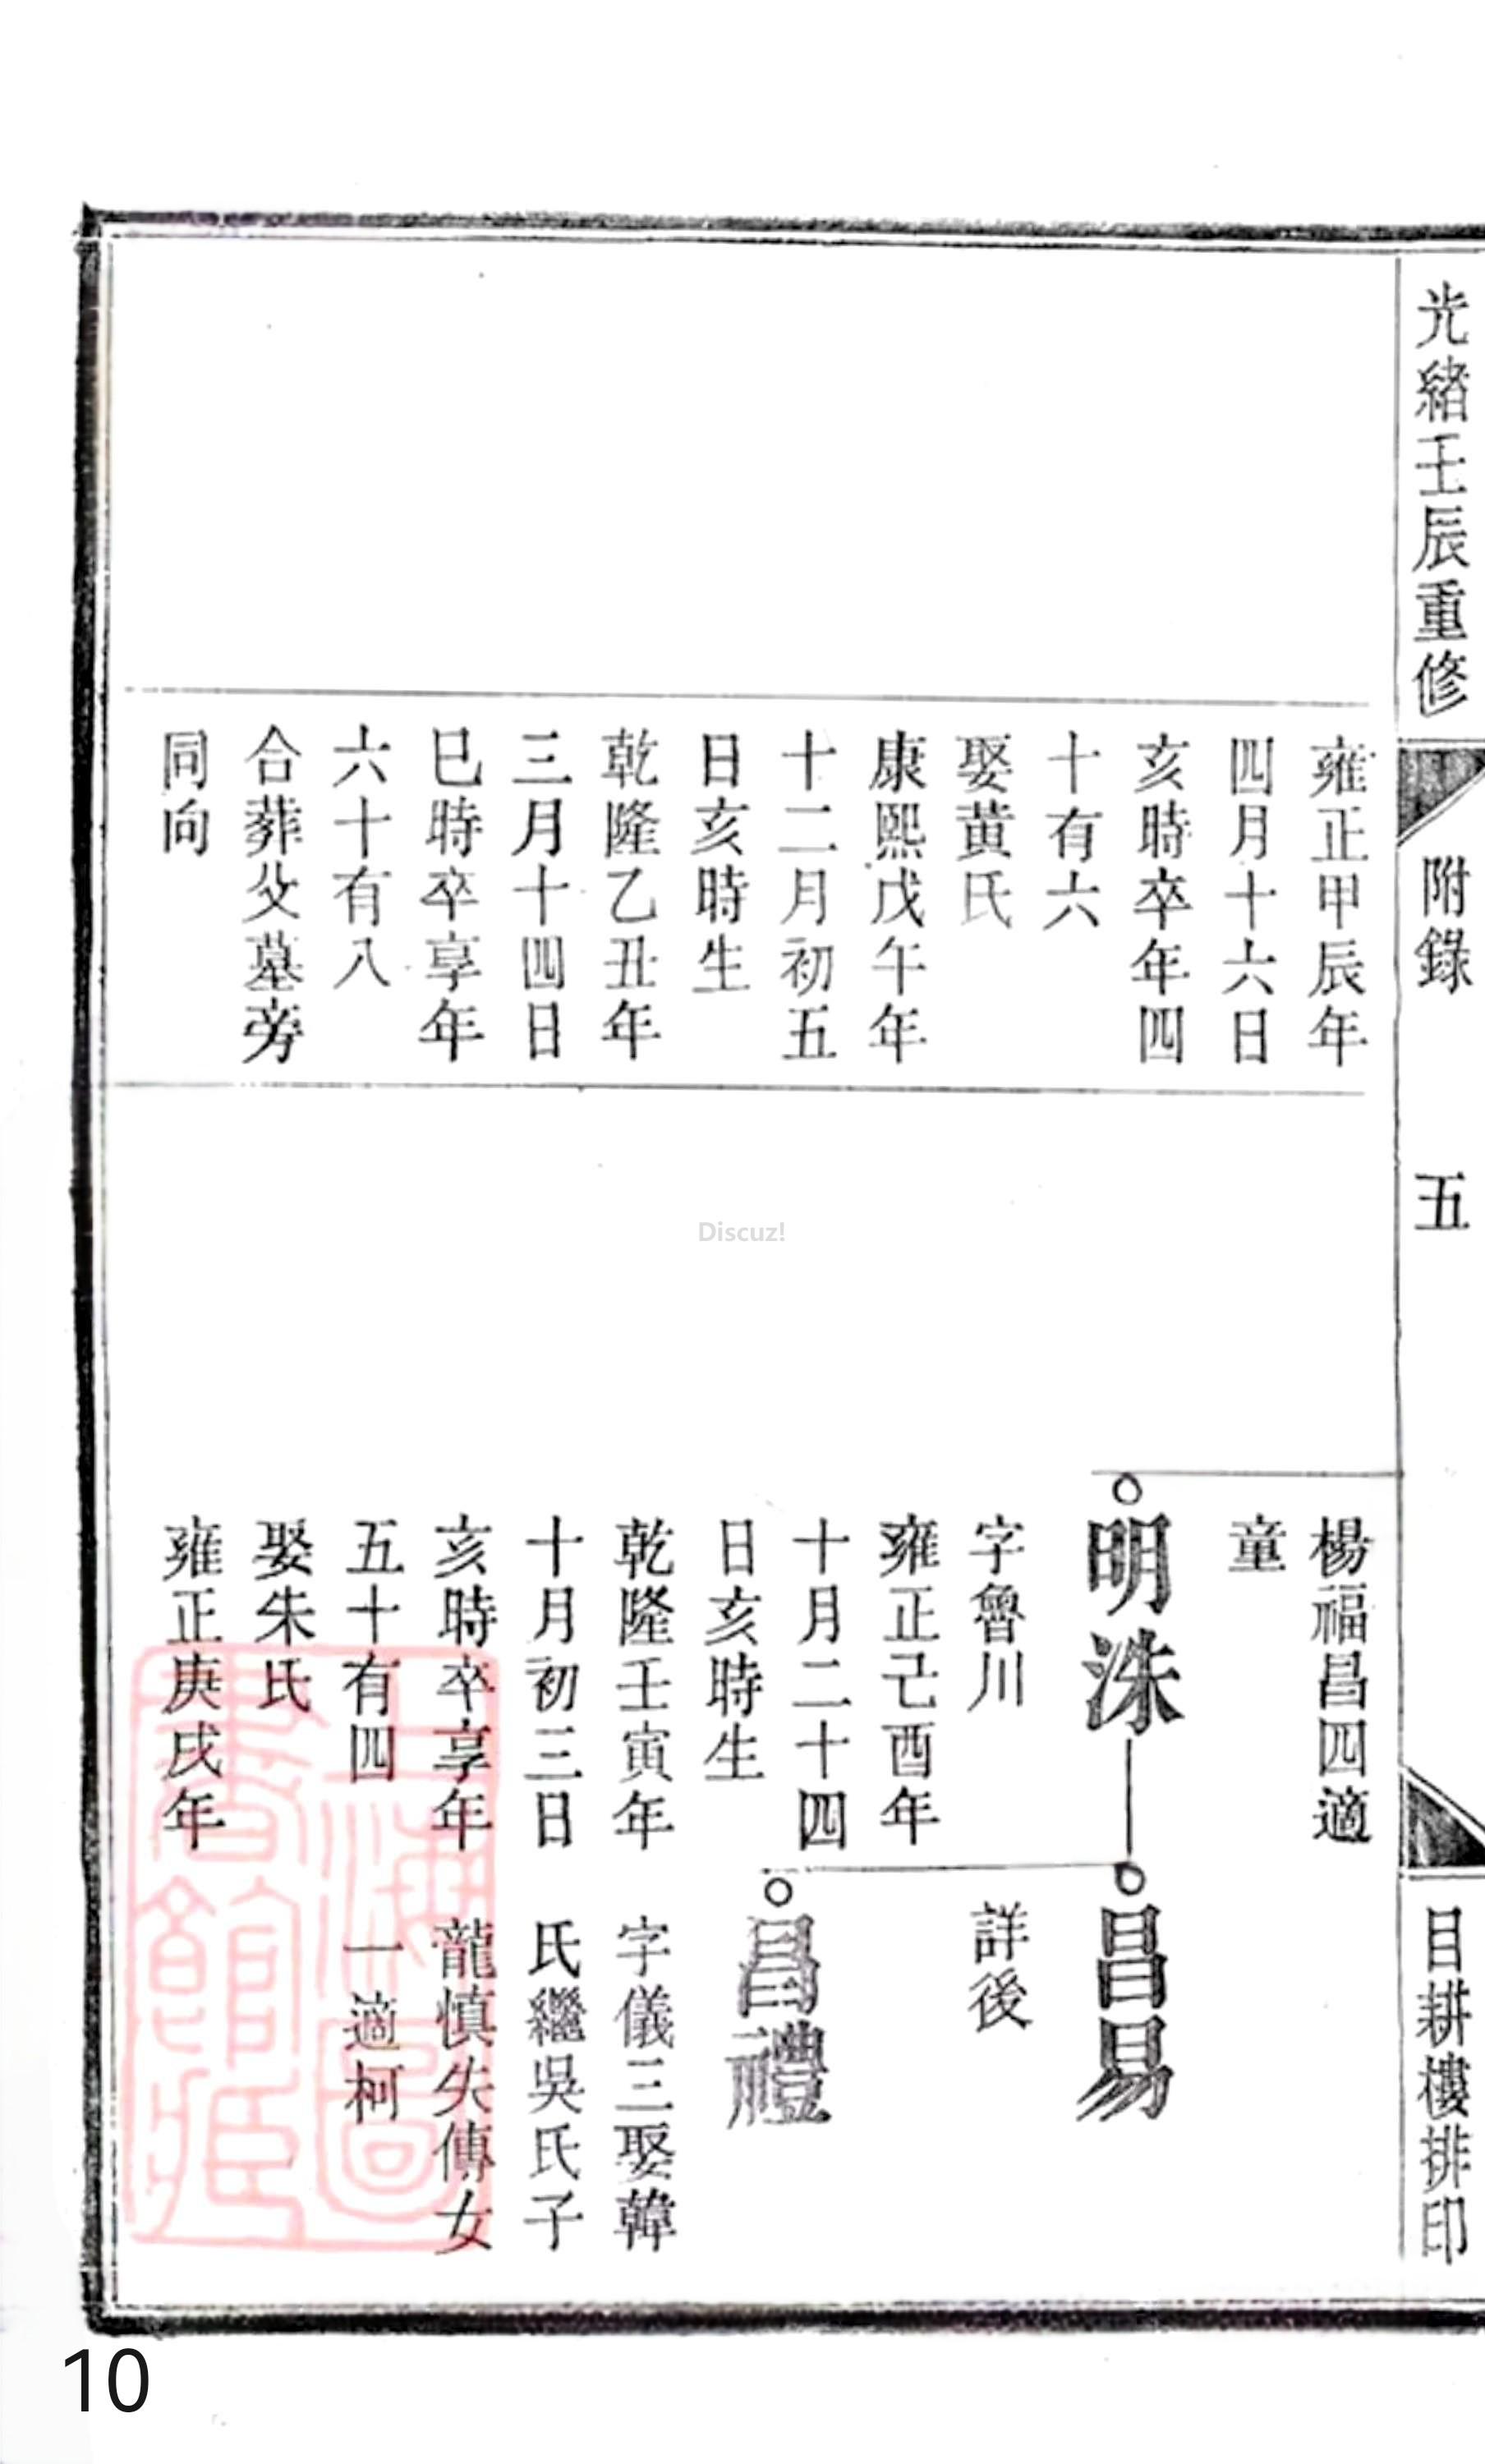 光緒壬辰重修
附錄
五
目耕樓排印
雍正甲辰年
四月十六日
亥時卒年四
十有六
娶黃氏
康熙戊午年
十二月初五
日亥時生
乾隆乙丑年
三月十四日
巳時卒享年
六十有八
合葬父墓旁
同向
楊福昌四適
童
明洙
字魯川
雍正己酉年
十月二十四
日亥時生
乾隆壬寅年
十月初三日
亥時卒享年
五十有四
娶朱氏
雍正庚戌年
昌易
詳後
昌禮
字儀三娶韓
氏繼吳氏子
龍慎失傳女
一適柯
上海圖
書館藏
Discuz!
10